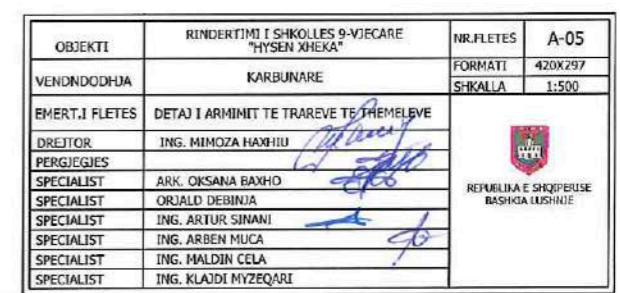 OBJEKTI
RINDERTIMI I SHKOLLES 9-VJECARE
"HYSEN XHEKA"
NR.FLETES
A-05
VENDNDODHJA
KARBUNARE
FORMATI
420X297
SHKALLA
1:500
EMERT.I FLETES
DETAJ I ARMIMIT TE TRAREVE TE THEMELEVE
DREJTOR
ING. MIMOZA HAXHIU
PERGJEGJES
SPECIALIST
ARK. OKSANA BAXHO
SPECIALIST
ORJALD DEBINJA
SPECIALIST
ING. ARTUR SINANI
SPECIALIST
ING. ARBEN MUCA
SPECIALIST
ING. MALDIN CELA
SPECIALIST
ING. KLAJDI MYZEQARI
REPUBLIKA E SHQIPERISE
BASHKIA LUSHNJE